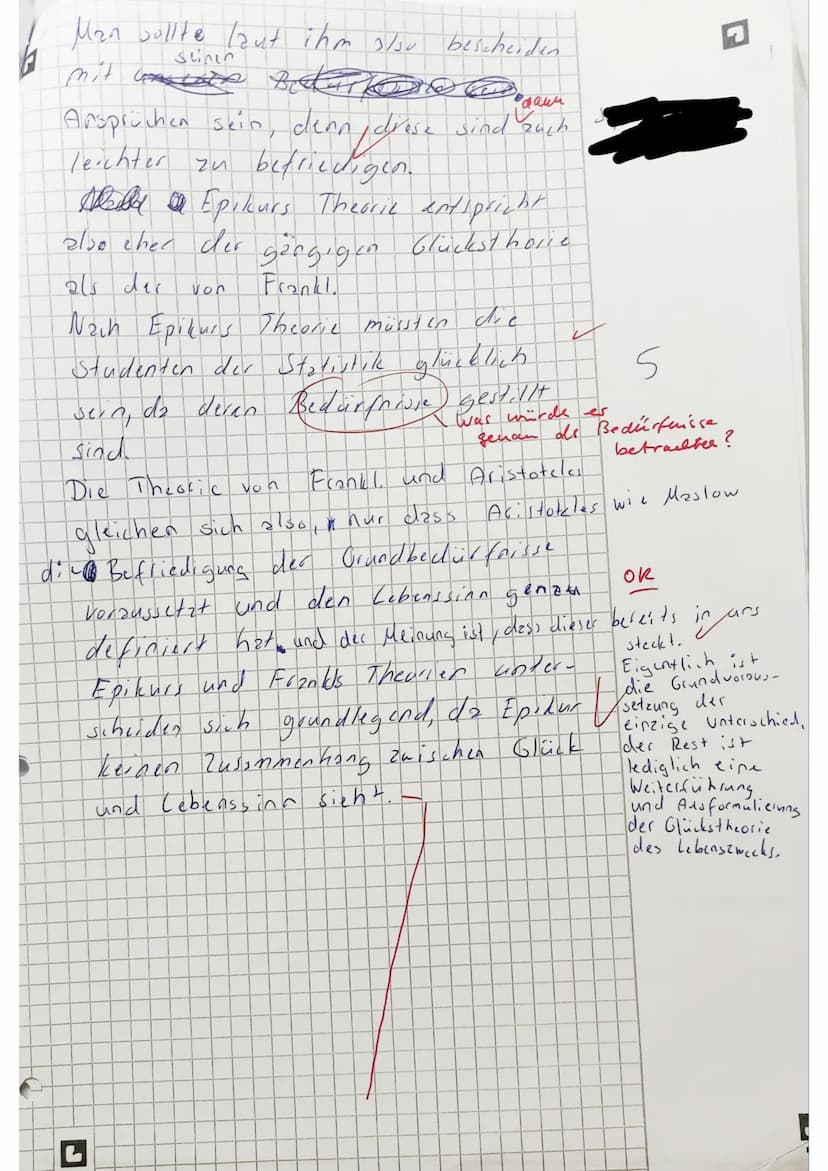 Man sollte laut ihm also bescheiden
mit seinen
dann
Ansprüchen sein, denn diese sind auch
leichter zu befriedigen.
Epikurs Theorie entspricht
also eher der gängigen Glücksthorie
als der von Frankl.
Nach Epikurs Theorie müssten die
Studenten der Statistik glücklich
5
sein, da deren Bedürfnisse gestillt
sind.
Was würde er
genau als Bedürfnisse
betrachten?
Die Theorie von Frankl und Aristoteles
gleichen sich also, nur dass Aristoteles wie Maslow
die Befriedigung der Grundbedürfnisse
voraussetzt und den Lebenssinn genau
OK
definiert hat und der Meinung ist, dass dieser bereits in uns
steckt.
Eigentlich ist
die Grundvoraus-
setzung der
einzige Unterschied,
der Rest ist
lediglich eine
Weiterführung
und Ausformulierung
der Glückstheorie
des Lebenszwecks.
Epikurs und Frankls Theorien unter-
scheiden sich grundlegend, da Epikur
keinen Zusammenhang zwischen Glück
und Lebenssinn sieht.